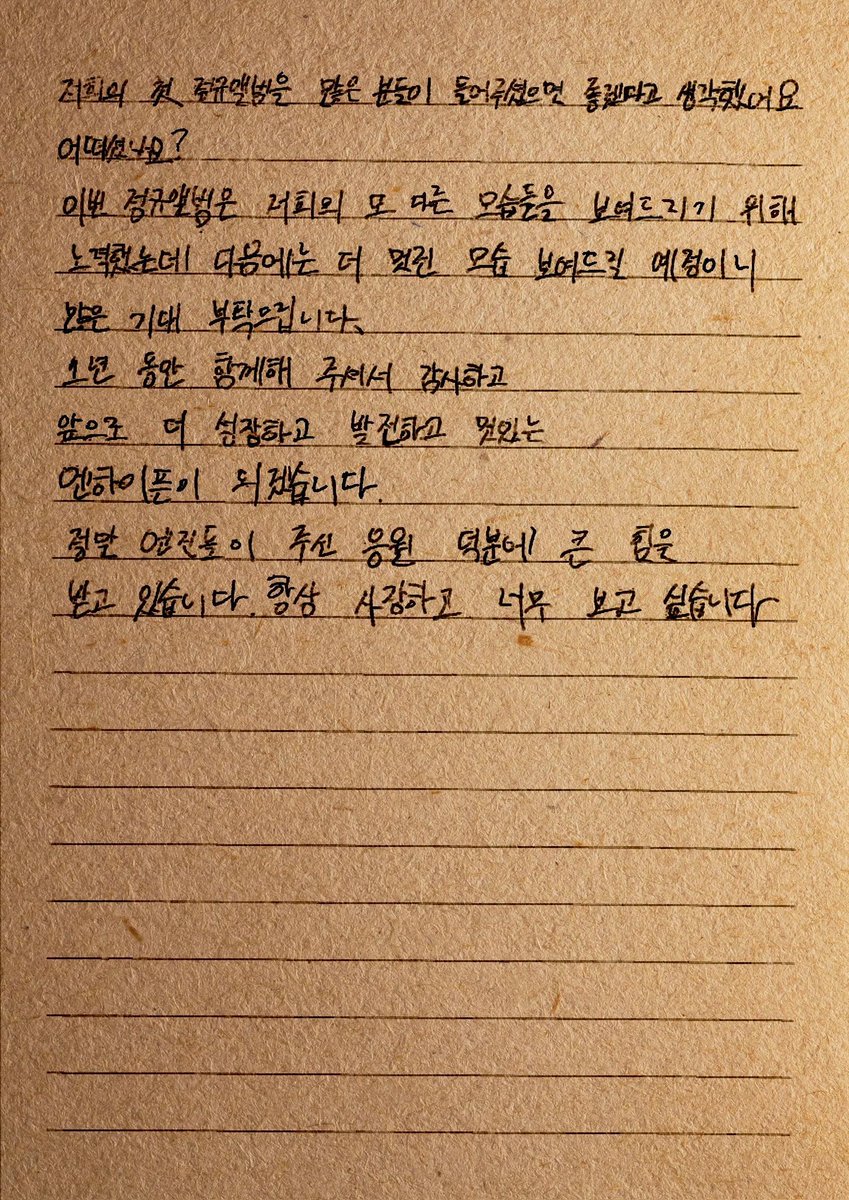 저희의 첫 정규앨범을 많은 분들이 들어주셨으면 좋겠다고 생각했어요
어떠셨나요?
이번 정규앨범은 저희의 또 다른 모습들을 보여드리기 위해
노력했는데 다음에는 더 멋진 모습 보여드릴 예정이니
많은 기대 부탁드립니다.
1년 동안 함께해 주셔서 감사하고
앞으로 더 성장하고 발전하고 멋있는
엔하이픈이 되겠습니다.
정말 엔진들이 주신 응원 덕분에 큰 힘을
받고 있습니다. 항상 사랑하고 너무 보고 싶습니다